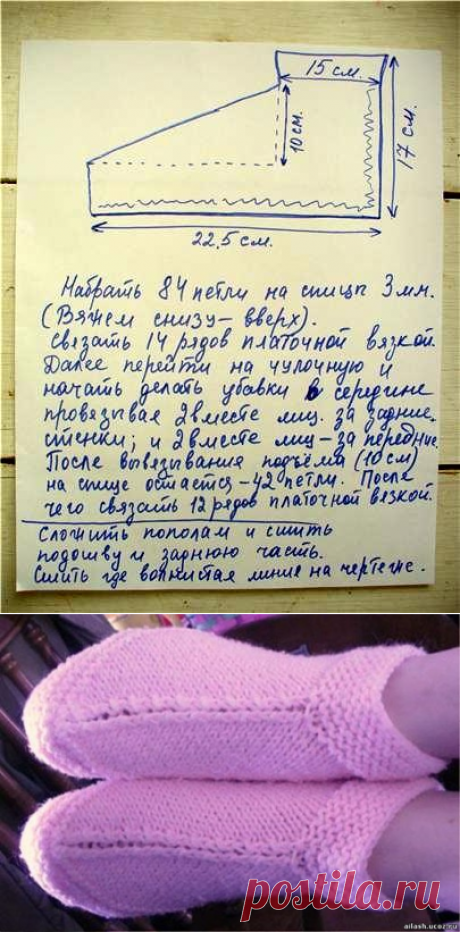 15 см.
10 см.
17 см.
22,5 см.
Набрать 84 петли на спицы 3 мм.
(Вяжем снизу – вверх).
Связать 14 рядов платочной вязкой.
Далее перейти на чулочную и
начать делать убавки в середине
провязывая 2 вместе лиц. за задние
стенки; и 2 вместе лиц – за передние.
После вывязывания подъёма (10 см)
на спице остается – 42 петли. После
чего связать 12 рядов платочной вязкой.
Сложить пополам и сшить
подошву и заднюю часть.
Сшить где волнистая линия на чертеже.
postila.ru
ailash.ucoz.ru